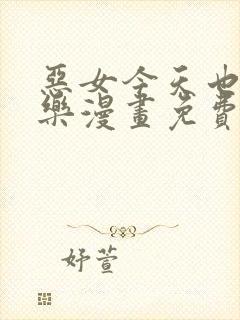 惡女今天也
樂漫畫免費
妤萱